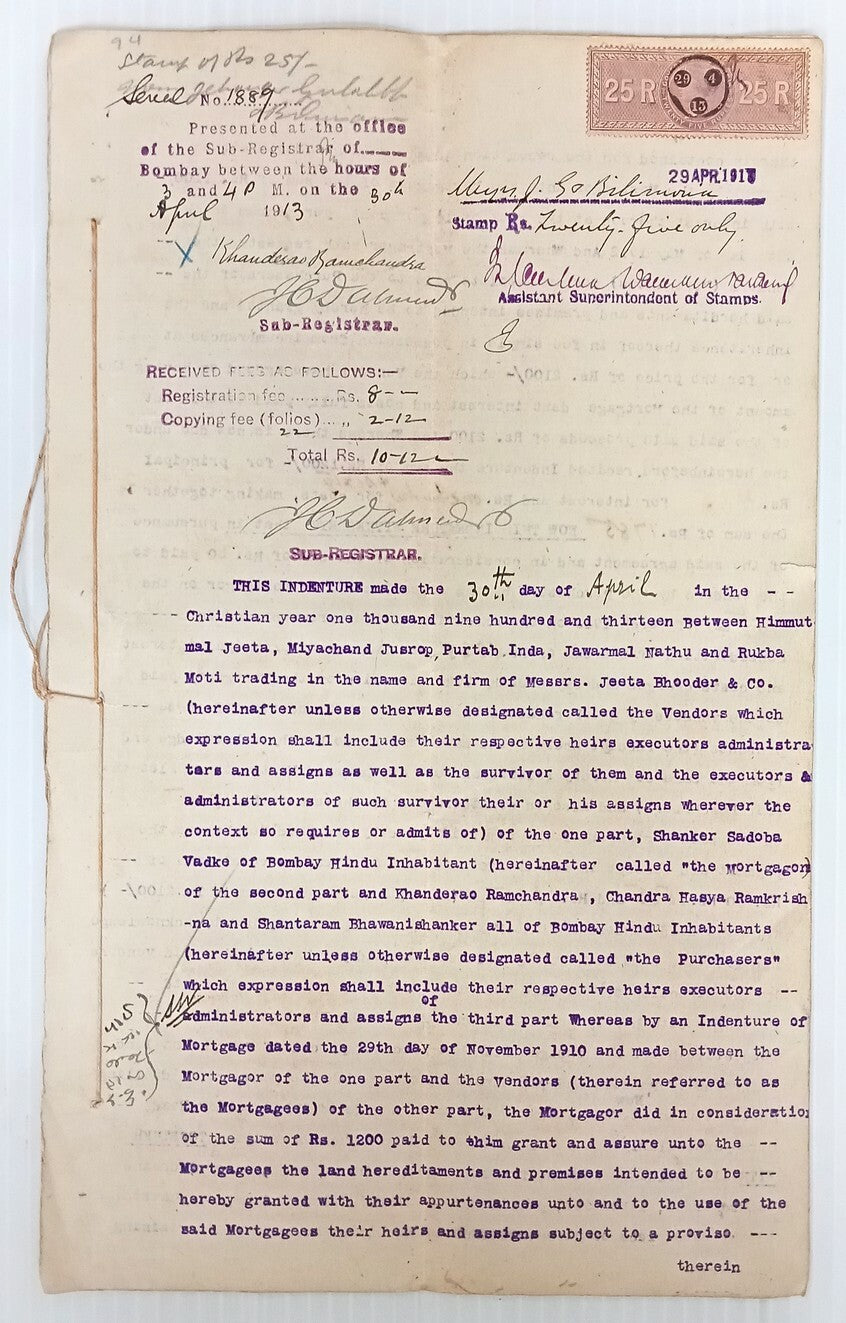 94
Stamp of Rs 25/-
Serial No. 1889
Presented at the office
of the Sub-Registrar of
Bombay between the hours of
3 and 4 P M. on the 30th
April 1913
X Khanderao Ramchandra
Sub-Registrar.
RECEIVED FEES AS FOLLOWS:—
Registration fee ........ Rs. 8 - -
Copying fee (folios) ... ,, 2-12
22
Total Rs. 10-12
SUB-REGISTRAR.
25 R 29 4 13 25 R
29 APR 1913
Messrs. J. G. Bilimoria
Stamp Rs. Twenty-five only
Assistant Superintendent of Stamps.
THIS INDENTURE made the 30th day of April in the - -
Christian year one thousand nine hundred and thirteen Between Himmut
mal Jeeta, Miyachand Jusrop, Purtab Inda, Jawarmal Nathu and Rukba
Moti trading in the name and firm of Messrs. Jeeta Bhooder & Co.
(hereinafter unless otherwise designated called the Vendors which
expression shall include their respective heirs executors administra
tors and assigns as well as the survivor of them and the executors &
administrators of such survivor their or his assigns wherever the
context so requires or admits of) of the one part, Shanker Sadoba
Vadke of Bombay Hindu Inhabitant (hereinafter called "the Mortgagor)
of the second part and Khanderao Ramchandra , Chandra Hasya Ramkrish
-na and Shantaram Bhawanishanker all of Bombay Hindu Inhabitants
(hereinafter unless otherwise designated called "the Purchasers"
which expression shall include their respective heirs executors --
administrators and assigns of the third part Whereas by an Indenture of
Mortgage dated the 29th day of November 1910 and made between the
Mortgagor of the one part and the vendors (therein referred to as
the Mortgagees) of the other part, the Mortgagor did in consideration
of the sum of Rs. 1200 paid to him grant and assure unto the --
Mortgagees the land hereditaments and premises intended to be --
hereby granted with their appurtenances unto and to the use of the
said Mortgagees their heirs and assigns subject to a proviso ---
therein